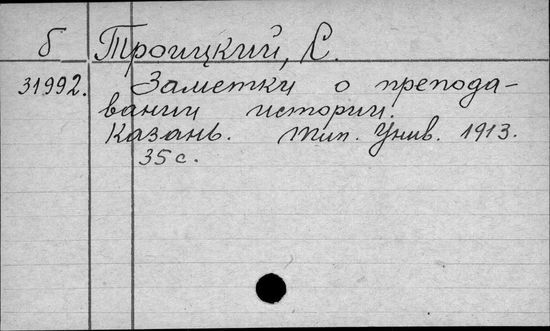 б Троицкий, С.
31992. Заметки о препода-
вании истории.
Казань. Тип. Унив. 1913.
35 с.